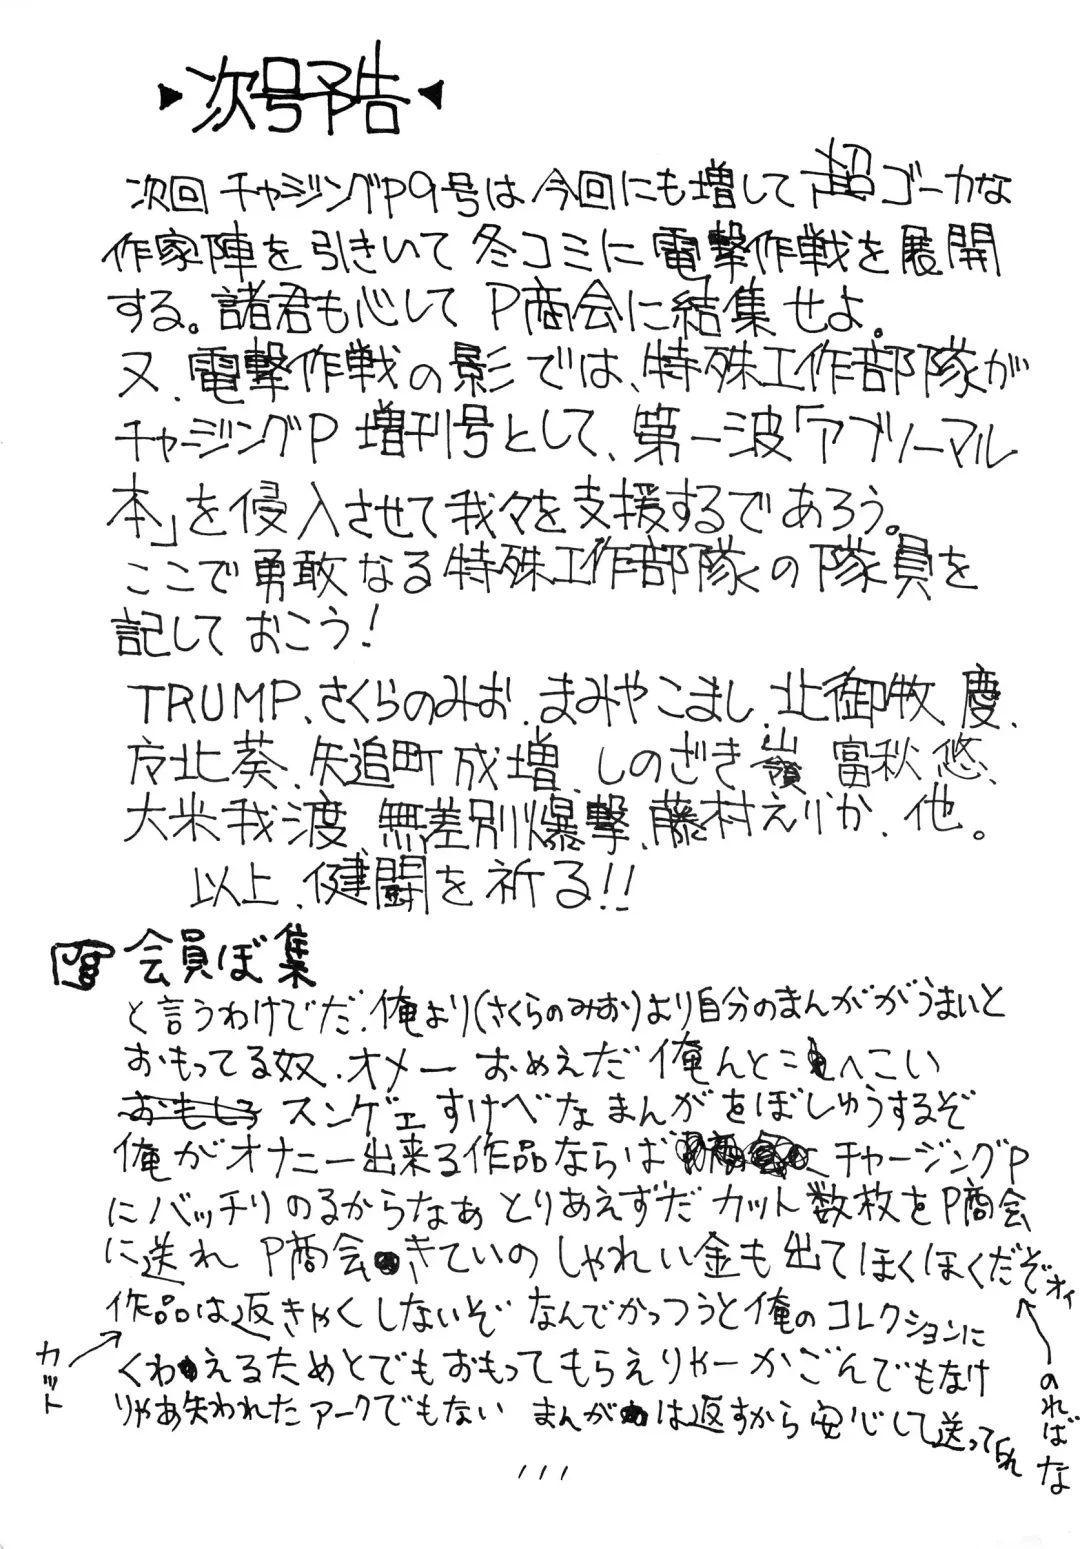 次号予告
次回 チャージングP9号は 今回にも増して 超ゴーカな
作家陣を引きいて 冬コミに 電撃作戦を展開
する。諸君も心して P商会に結集せよ。
又、電撃作戦の影では、特殊工作部隊が
チャージングP 増刊号として、第一波「アブノーマル
本」を侵入させて我々を支援するであろう。
ここで勇敢なる特殊工作部隊の隊員を
記しておこう!
TRUMP、さくらのみお、まみやこまし、北御牧 慶、
方北葵、矢追町成増、しのざき嶺、富秋 悠、
大米我渡、無差別爆撃、藤村えりか、他。
以上、健闘を祈る!!
会員ぼ集
と言うわけでだ、俺より(さくらのみお)より自分のまんががうまいと
おもってる奴、オメーおめえだ 俺んとこへこい
スンゲェすけべなまんがをぼしゅうするぞ
俺がオナニー出来る作品ならば チャージングP
にバッチリのるからなぁ とりあえずだ カット数枚をP商会
に送れ P商会きていの しゃれい金も出てほくほくだぞオイ
作品は返きゃくしないぞ なんでかっつうと俺のコレクションに
くわえるためとでもおもってもらえりゃーかごんでもなけ
りゃあ失われたアークでもない まんがは返すから安心して送ってくれ
カット
のればな
111